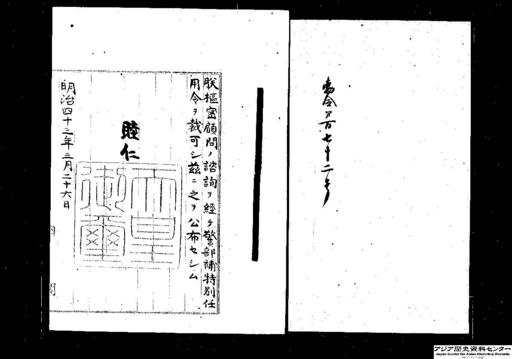 勅令第百七十二号
朕樞密顧問ノ諮詢ヲ経テ警部補特別任
用令ヲ裁可シ茲ニ之ヲ公布セシム
睦仁
天皇御璽
明治四十三年三月二十六日
内閣
アジア歴史資料センター
Japan Center for Asian Historical Records